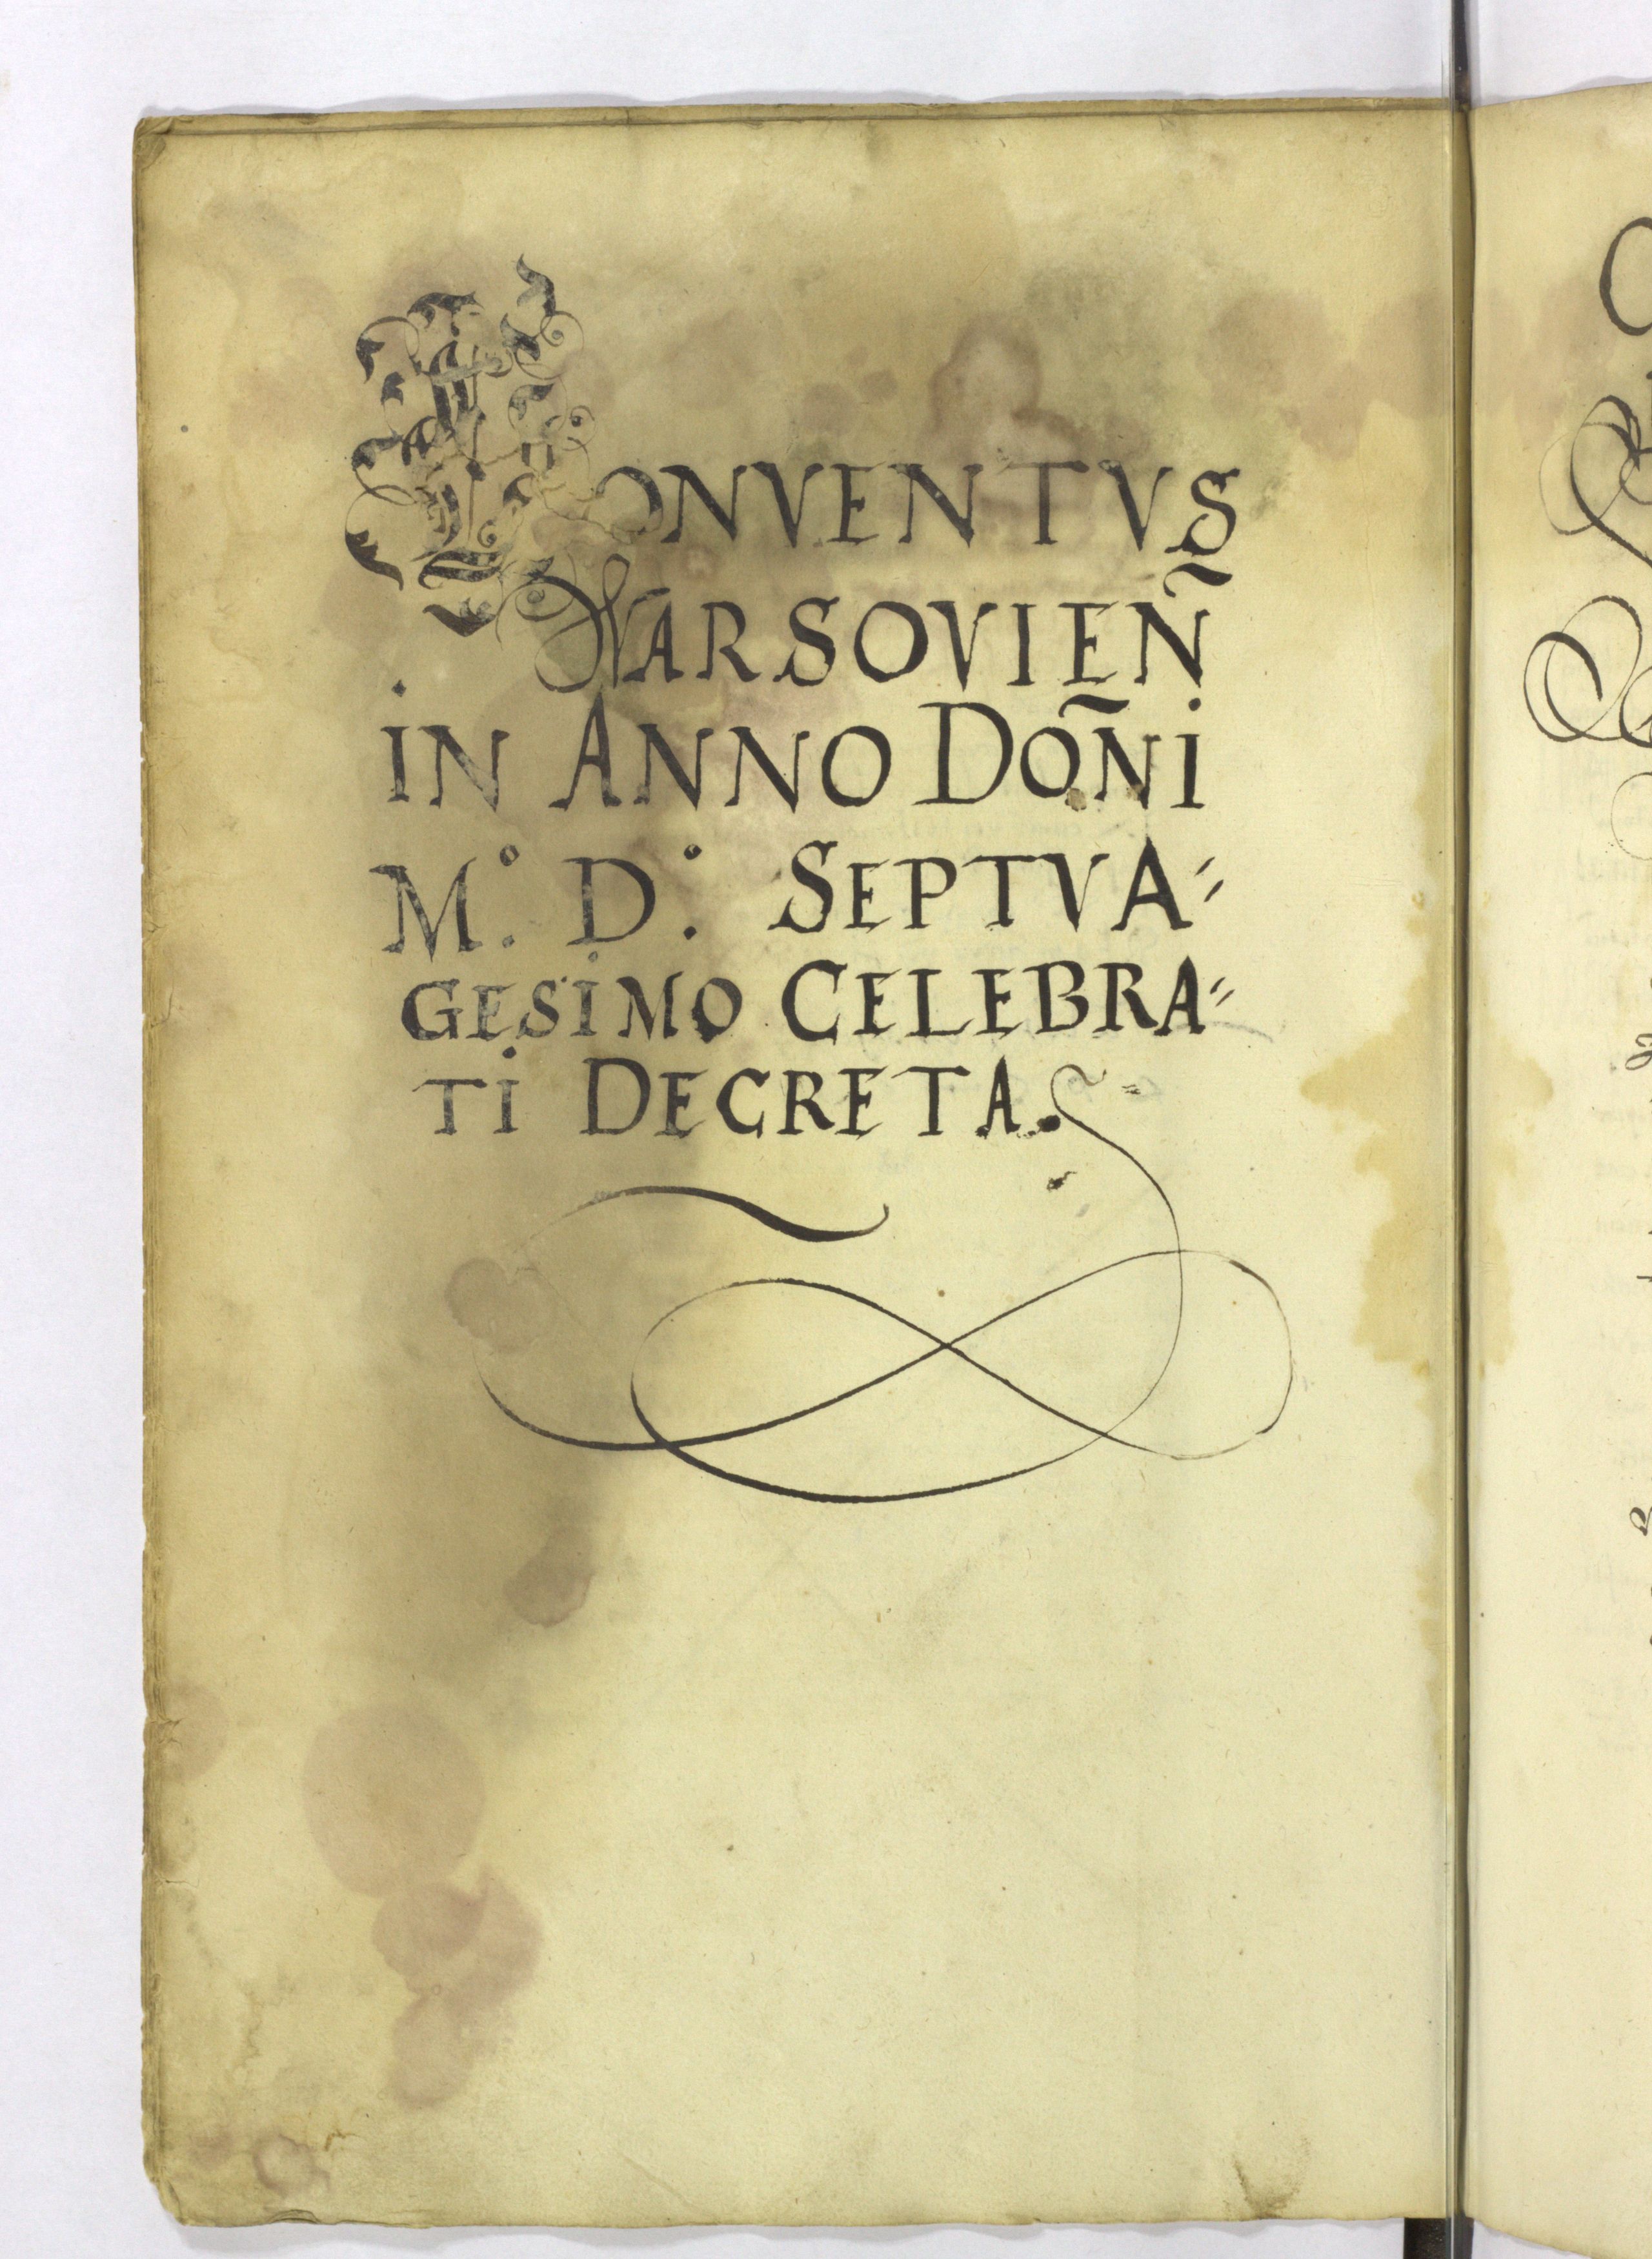 CONVENTVS
WARSOVIEÑ
IN ANNO DOÑI
M.° D.° SEPTVA⸗
GESIMO CELEBRA⸗
TI DECRETA.